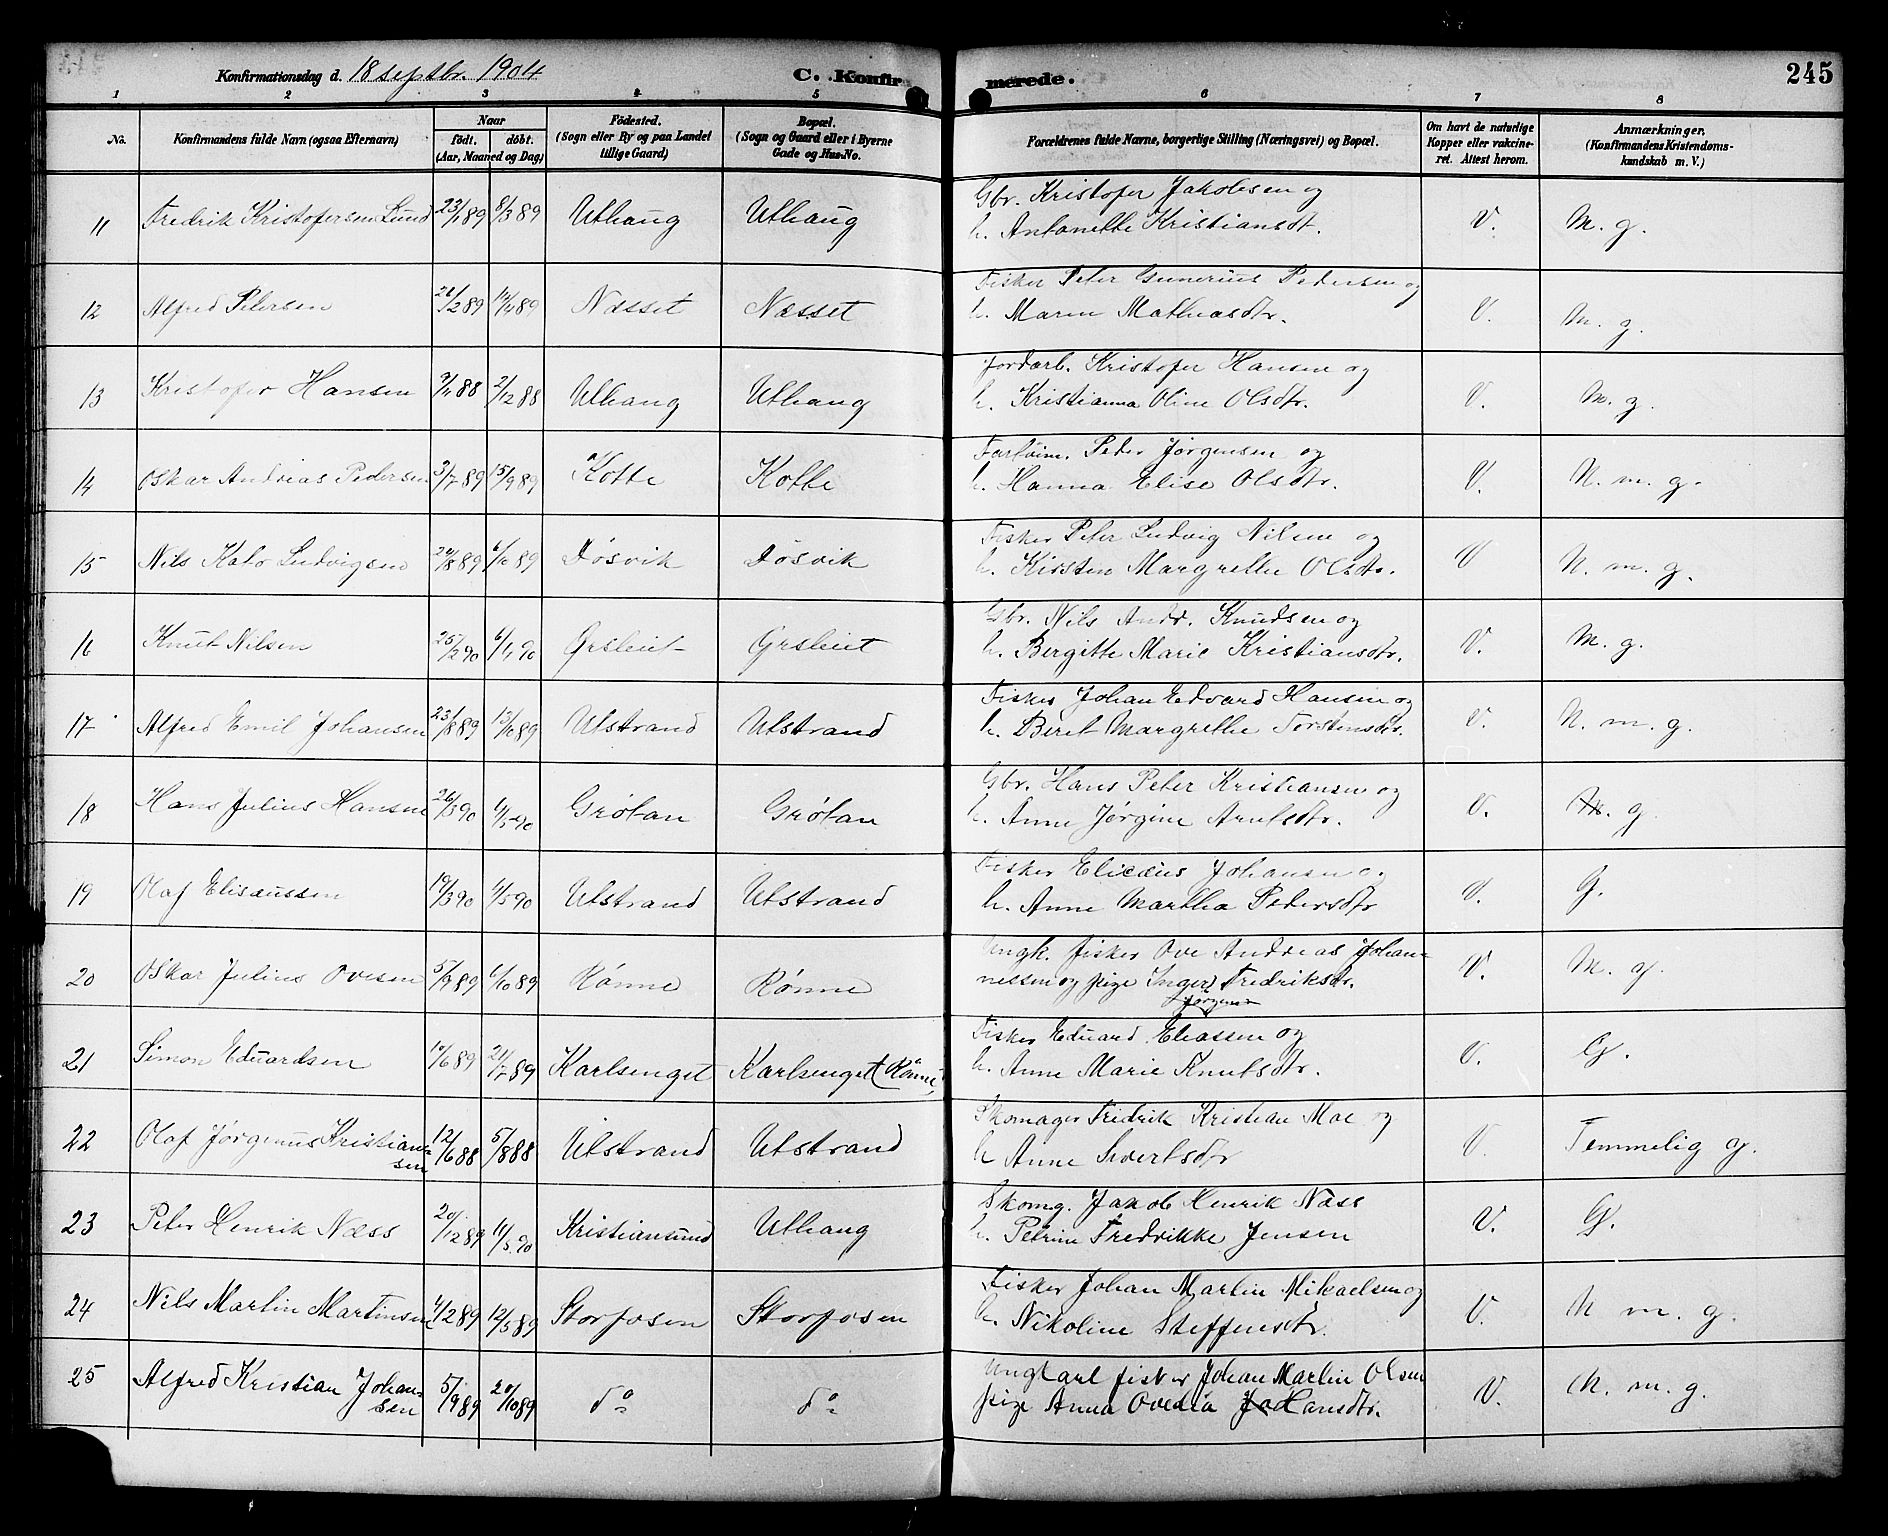 245
Konfirmationsdag d. 18 septbr. 1904 C. Konfirmerede.
1 2 3 4 5 6 7 8
No. Konfirmandens fulde Navn (ogsaa Efternavn) Naar födt. döbt. (Aar, Maaned og Dag) Födested. (Sogn eller By og paa Landet tillige Gaard) Bopæl. (Sogn og Gaard eller i Byerne Gade og Hus-No. Forældrenes fulde Navne, borgerlige Stilling (Næringsvei) og Bopæl. Om havt de naturlige Kopper eller vaccineret. Attest herom. Anmærkninger. (Konfirmandens Kristendomskundskab m. V.)
11 Fredrik Kristofersen Lund 23/1 89 8/3 89 Uthaug Uthaug Gbr. Kristofer Jakobsen og
h. Antonette Kristiansdt. V. M. g.
12 Alfred Petersen 21/2 89 89 Næsset Næsset Fisker Peter Gunerius Pedersen og
h. Maren Mathiasdtr. V. M. g.
13 Kristofer Hansen 9/11 88 2/12 88 Uthaug Uthaug Jordarb. Kristofer Hansen og
h. Kristianna Oline Olsdtr. V. M. g.
14 Oskar Andreas Pedersen 3/7 89 15/9 89 Kotte Kotte Peder Jørgensen og
h. Hanna Elise Olsdtr. V. N. m. g.
15 Nils Kato Ludvigsen 24/8 89 6/10 89 Døsvik Døsvik Fisker Peter Ludvig Nilsen og
h. Kirsten Margrethe Olsdtr. V N. m. g.
16 Knut Nilsen 25/2 90 6/4 90 Ørsleiet Ørsleiet Gbr. Nils Andr. Knudsen og
h. Bergitte Marie Kristiansdtr. V. M. g.
17 Alfred Emil Johansen 23/8 89 13/10 89 Utstrand Utstrand Fisker Johan Edvard Hansen og
h. Beret Margrethe Torstensdtr. V. N. m. g.
18 Hans Julius Hansen 26/3 90 4/5 90 Grøtan Grøtan Gbr. Hans Peter Kristiansen og
h. Anne Jørgine Arntsdtr. V. M. g.
19 Olaf Elisæussen 19/3 90 4/5 90 Utstrand Utstrand Fisker Elicæus Johansen og
h. Anne Martha Pedersdtr V. G.
20 Oskar Julius Ovesen 5/9 89 6/10 89 Rönne Rönne Ungk. fisker Ove Andreas Johan-
nessen og pige Inger Fredriksdtr. V. M. g.
21 Simon Eduardsen 10/6 89 21/7 89 Karlsenget Karlsenget (Rönne) Fisker Eduard Eliassen og
h. Anne Marie Knutsdtr. V. G.
22 Olaf Jørgenius Kristian-
sen 12/6 88 5/8 88 Utstrand Utstrand Skomager Fredrik Kristian Moe og
h Anne Sivertsdtr V. Temmelig g.
23 Peter Henrik Næss 20/12 89 11/5 90 Kristiansund Uthaug Skomg. Jakob Henrik Næss
h. Petrine Fredrikke Jensen V. G.
24 Nils Martin Martinsen 4/2 89 12/5 89 Storfosen Storfosen Fisker Johan Martin Mikaelsen og
h. Nikoline Steffensdtr. V. N. m. g.
25 Alfred Kristian Johan-
sen 5/9 89 20/10 89 do do Ungkarl fisker Johan Martin Olsen
pige Anna Ovedia Hansdtr. V. N. m. g.